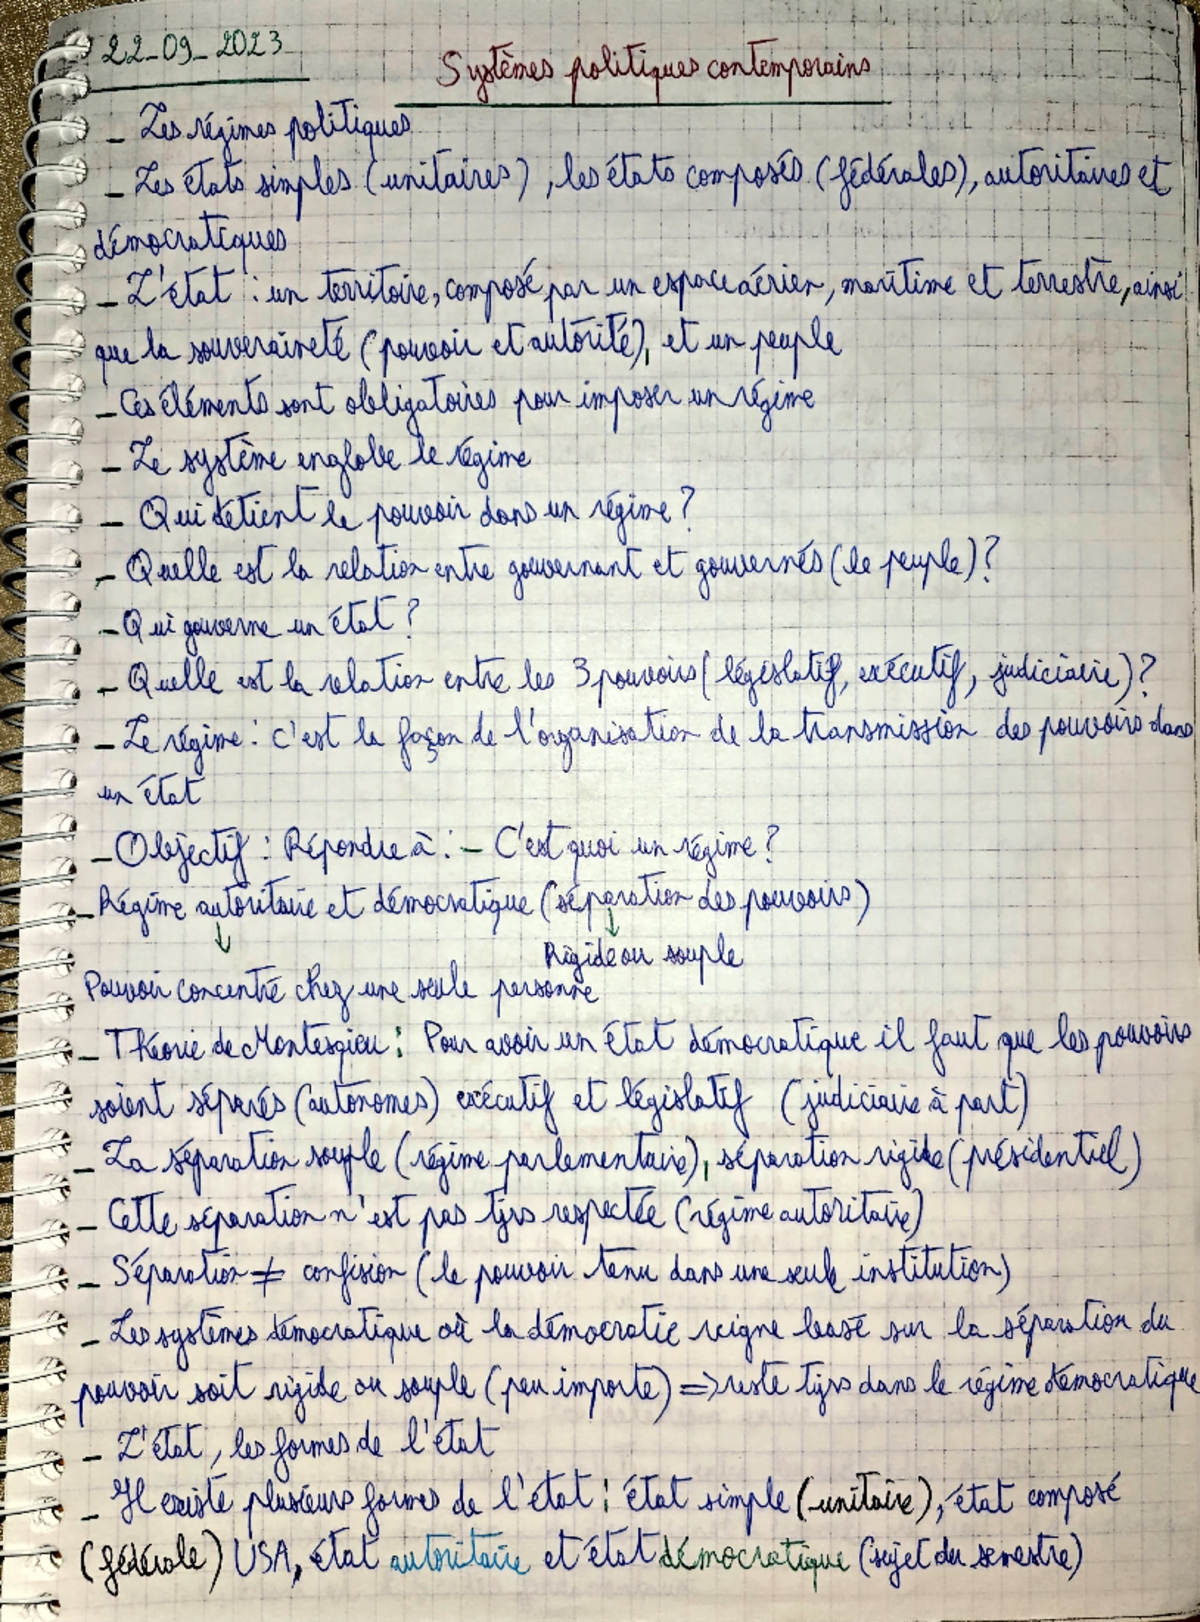 22-09-2023
Systèmes politiques contemporains
- Les régimes politiques
- Les états simples (unitaires), les états composés (fédérales), autoritaires et
démocratiques
- L'état : un territoire, composé par un espace aérien, maritime et terrestre, ainsi
que la souveraineté (pouvoir et autorité), et un peuple
- Ces éléments sont obligatoires pour imposer un régime
- Le système englobe le régime
- Qui détient le pouvoir dans un régime ?
- Quelle est la relation entre gouvernant et gouvernés (le peuple) ?
- Qui gouverne un état ?
- Quelle est la relation entre les 3 pouvoirs (législatif, exécutif, judiciaire) ?
- Le régime : c'est la façon de l'organisation de la transmission des pouvoirs dans
un état
- Objectif : Répondre à : - C'est quoi un régime ?
- Régime autoritaire et démocratique (séparation des pouvoirs)
↓ ↓
Rigide ou souple
Pouvoir concentré chez une seule personne
- Théorie de Montesqieu : Pour avoir un état démocratique il faut que les pouvoirs
soient séparés (autonomes) exécutif et législatif (judiciaire à part)
- La séparation souple (régime parlementaire), séparation rigide (présidentiel)
- Cette séparation n'est pas tjrs respectée (régime autoritaire)
- Séparation ≠ confision (le pouvoir tenu dans une seule institution)
- Les systèmes démocratique où la démocratie reigne base sur la séparation du
pouvoir soit rigide ou souple (peu importe) => reste tjrs dans le régime démocratique
- L'état, les formes de l'état
- Il existe plusieurs formes de l'état : état simple (unitaire), état composé
(fédérale) USA, état autoritaire et état démocratique (sujet du semestre)